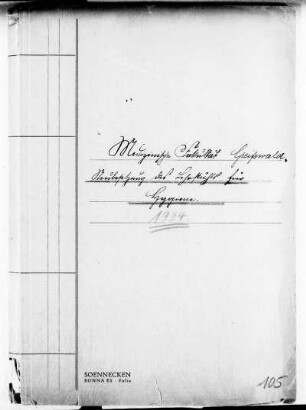 Medizinische Fakultät Greifswald.
Neubesetzung des Lehrstuhls für
Hygiene.
1934.
SOENNECKEN
BONNA ES · Folio
105